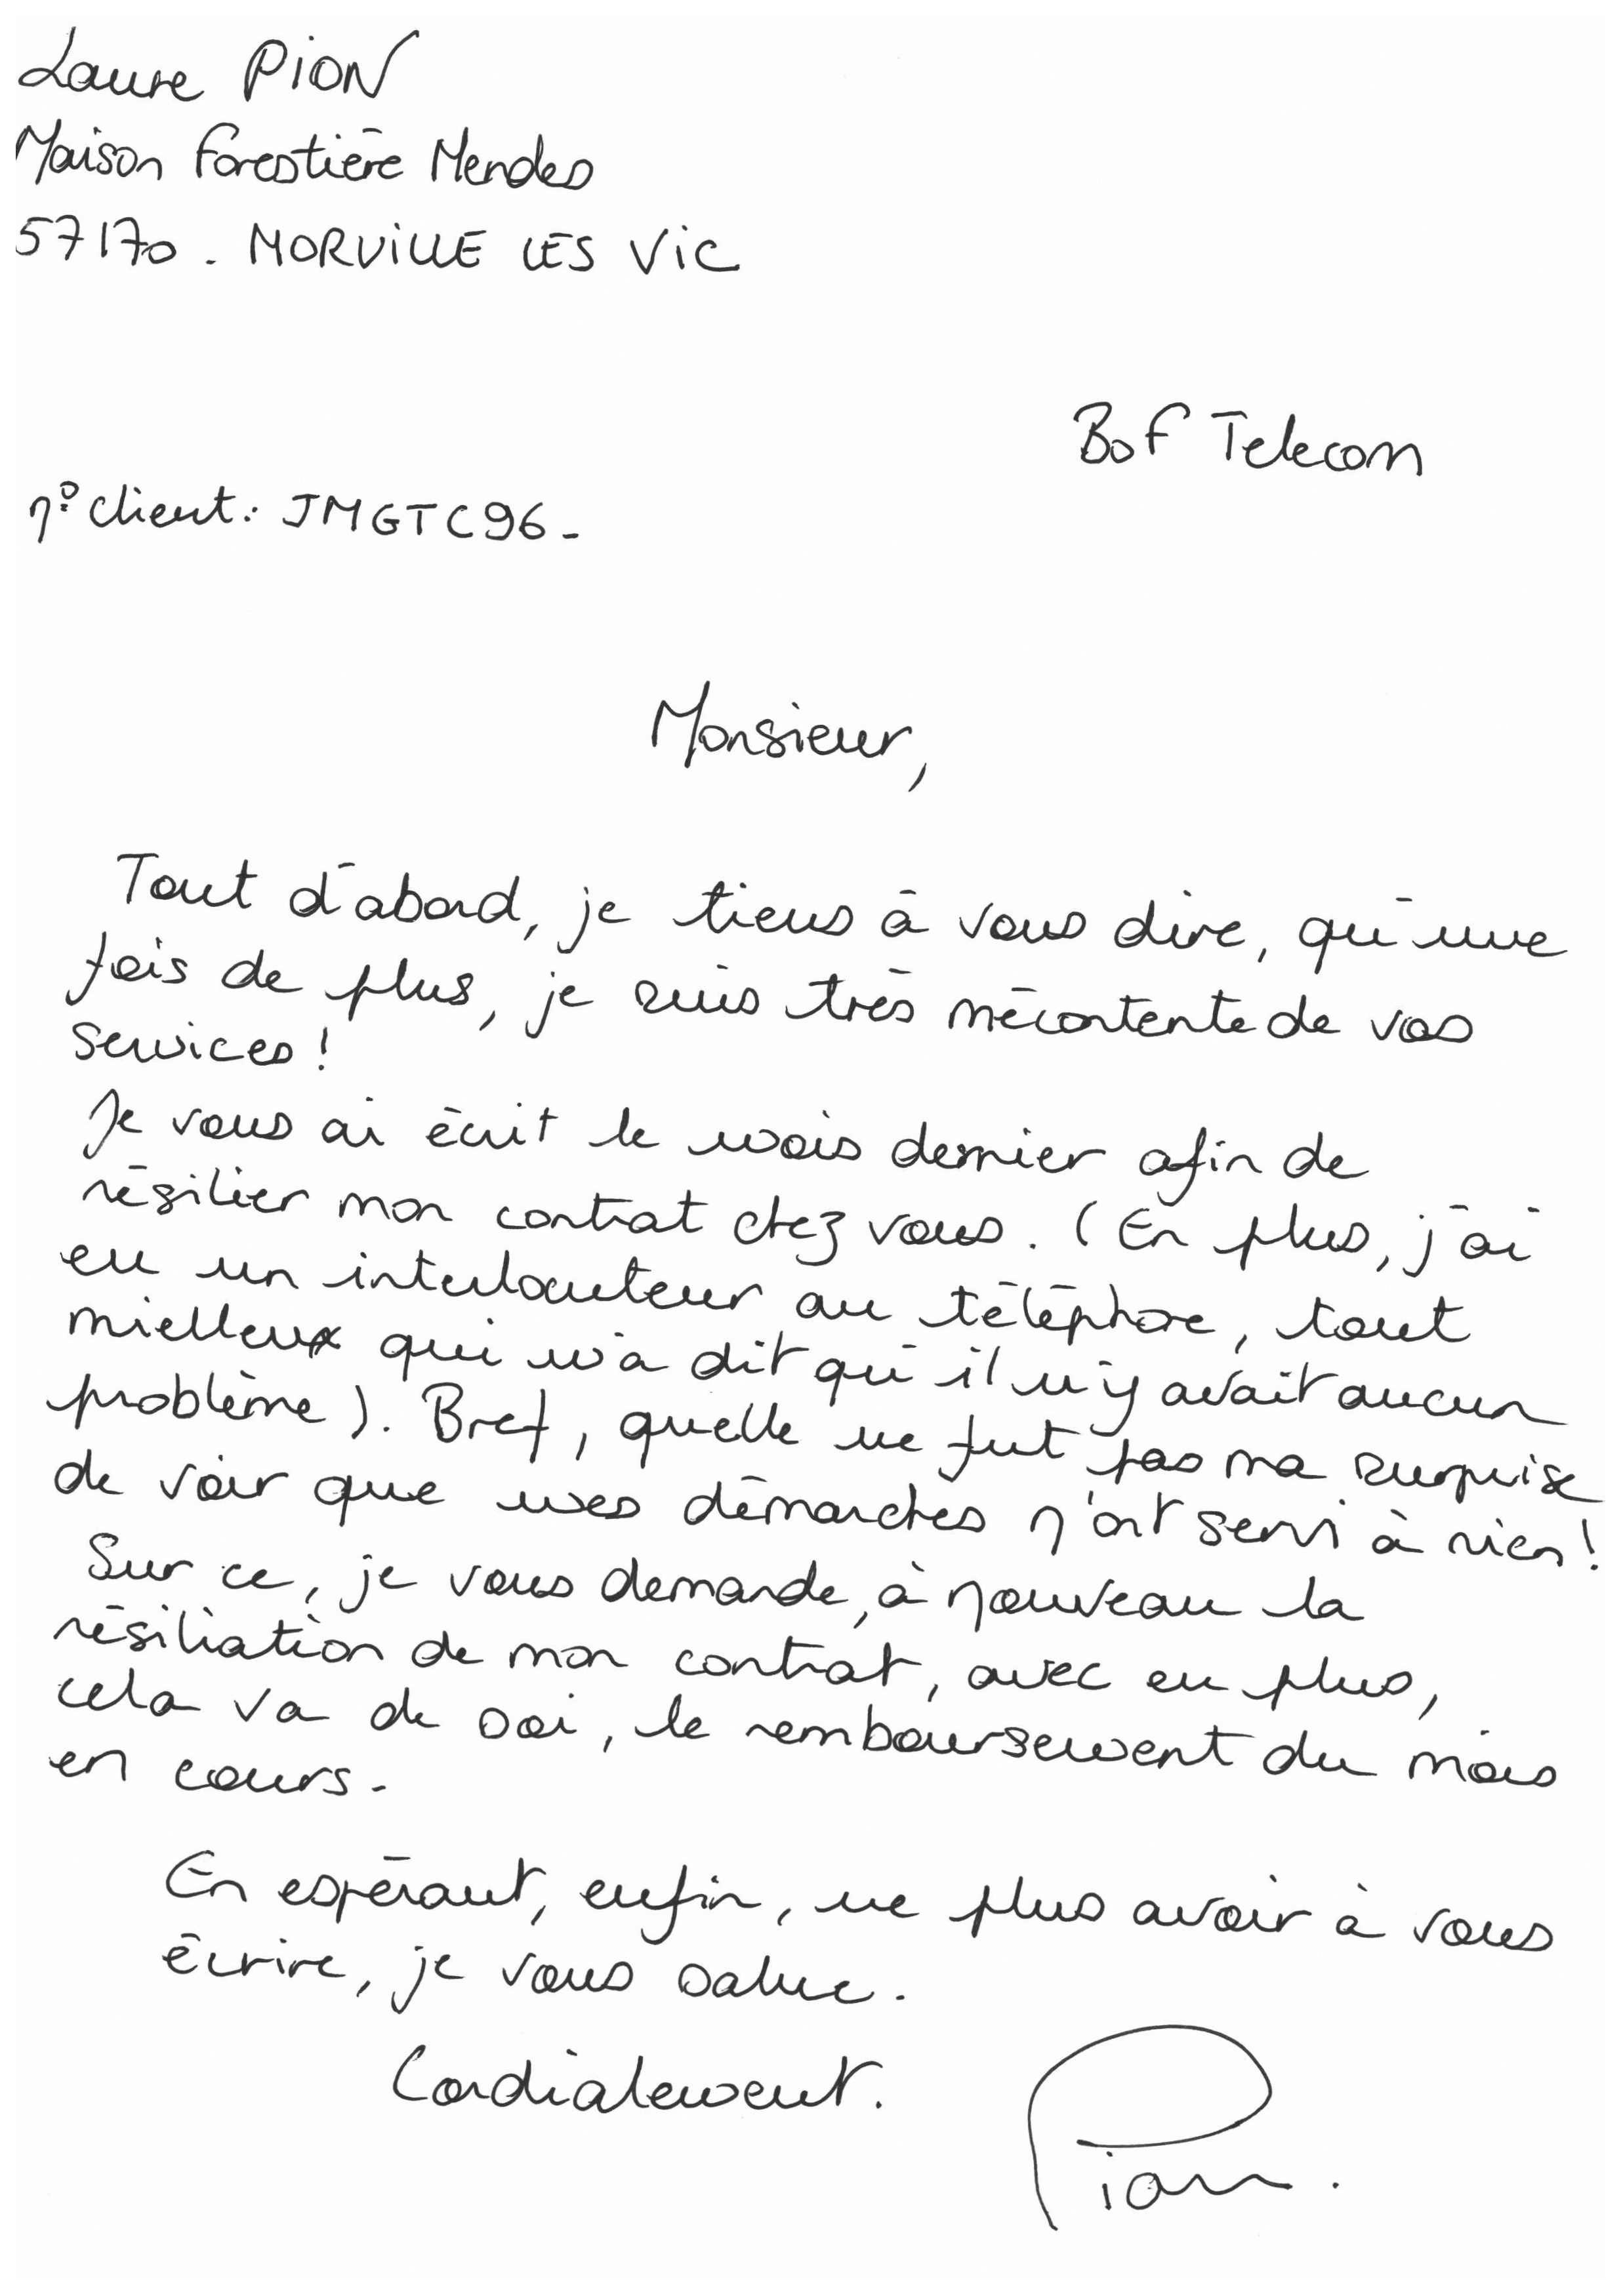 Laure PION
Maison Forestière Mendes
57170. MORVILLE LES VIC
Bof Telecom
n° client: JMGTC96-
Monsieur,
Tout d'abord, je tiens à vous dire, qu'une
fois de plus, je suis très mécontente de vos
services!
Je vous ai écrit le mois dernier afin de
résilier mon contrat chez vous. (En plus, j'ai
eu un interlocuteur au téléphone, tout
mielleux qui m'a dit qu'il n'y avait aucun
problème). Bref, quelle ne fut pas ma surprise
de voir que mes démarches n'ont servi à rien!
Sur ce, je vous demande, à nouveau la
résiliation de mon contrat, avec en plus,
cela va de soi, le remboursement du mois
en cours.
En espérant, enfin, ne plus avoir à vous
écrire, je vous salue.
Cordialement.
Pion.